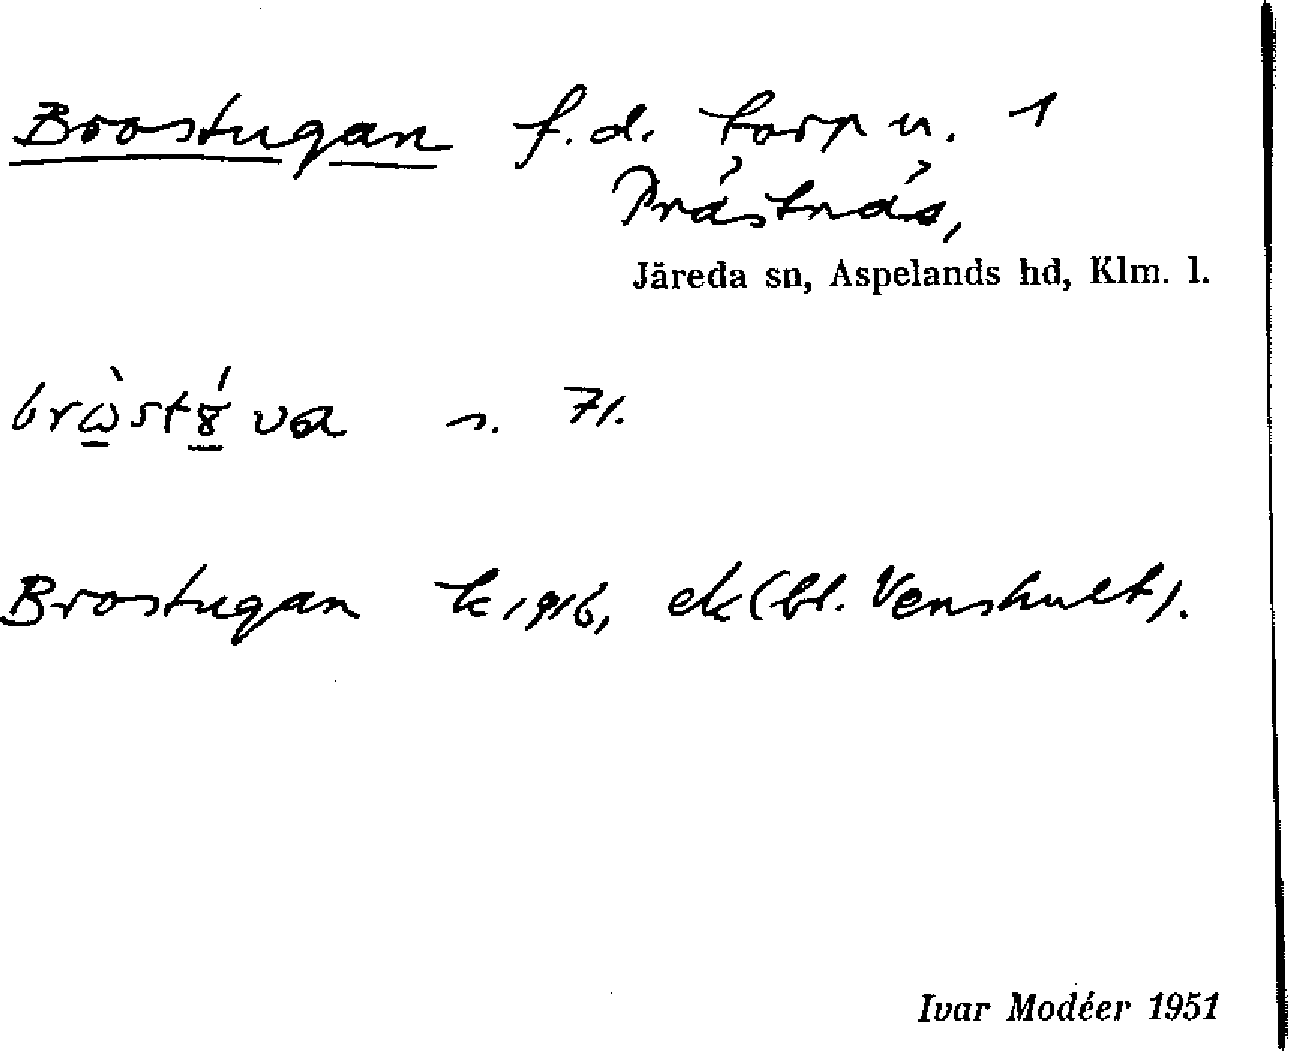 Brostugan f.d. torp u. 1
Prästnäs,
Järeda sn, Aspelands hd, Klm. l.
brὼstȣ́va s. 71.
Brostugan k 1916, ek (bl. Venshult).
Ivar Modéer 1951